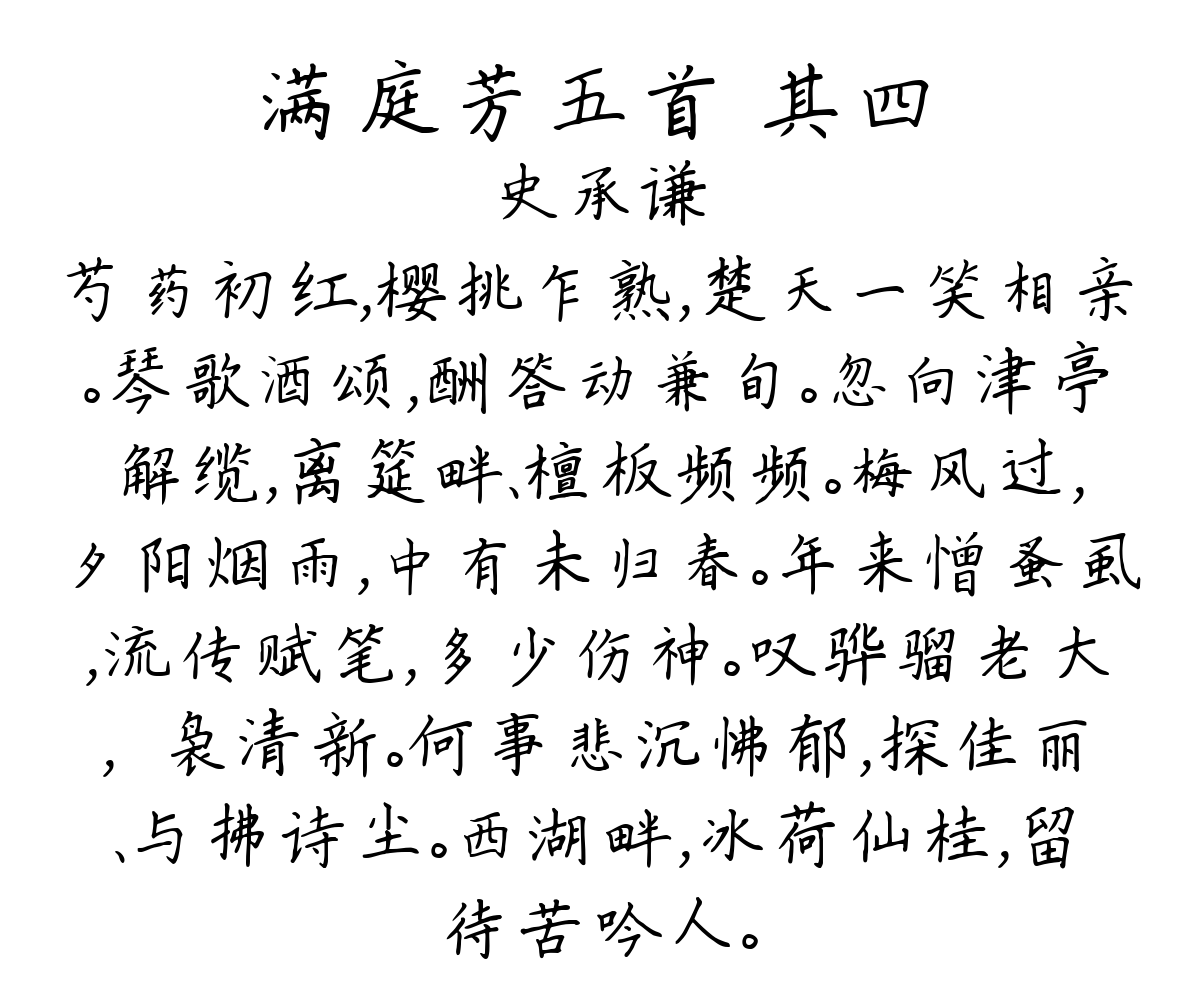 满庭芳五首 其四
史承谦
芍药初红,樱挑乍熟,楚天一笑相亲
。琴歌酒颂,酬答动兼旬。忽向津亭
解缆,离筵畔、檀板频频。梅风过,
夕阳烟雨,中有未归春。年来憎蚤虱
,流传赋笔,多少伤神。叹骅骝老大
, 袅清新。何事悲沉怫郁,探佳丽
、与拂诗尘。西湖畔,冰荷仙桂,留
待苦吟人。